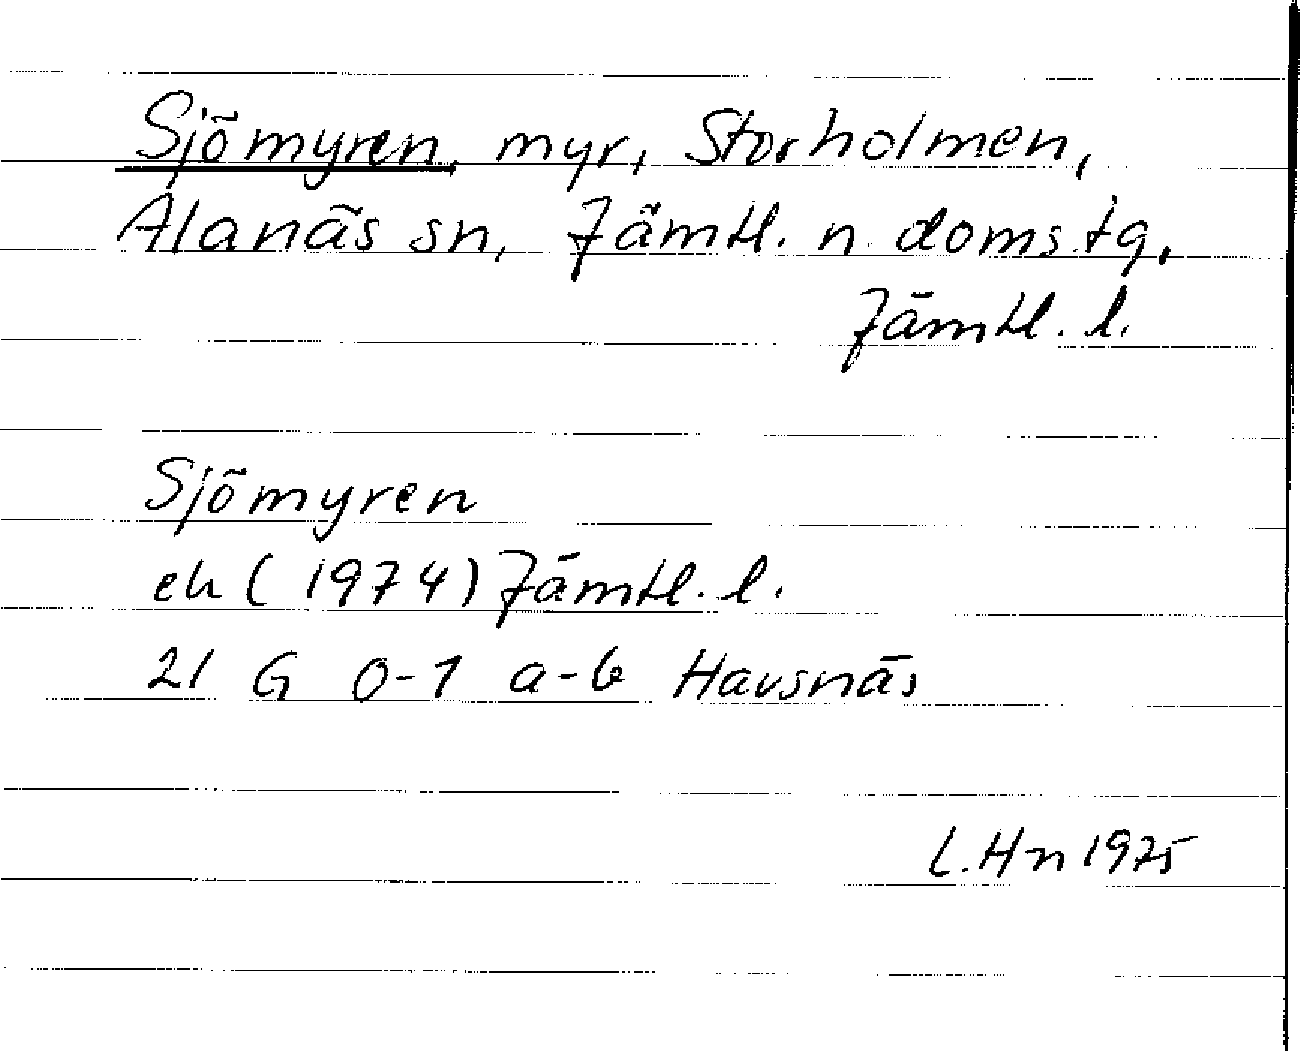 Sjömyren, myr, Storholmen,
Alanäs sn, Jämtl. n domstg,
Jämtl. l.
Sjömyren
ek (1974) Jämtl. l.
21 G 0-1 a-b Havsnäs
L. Hn 1975